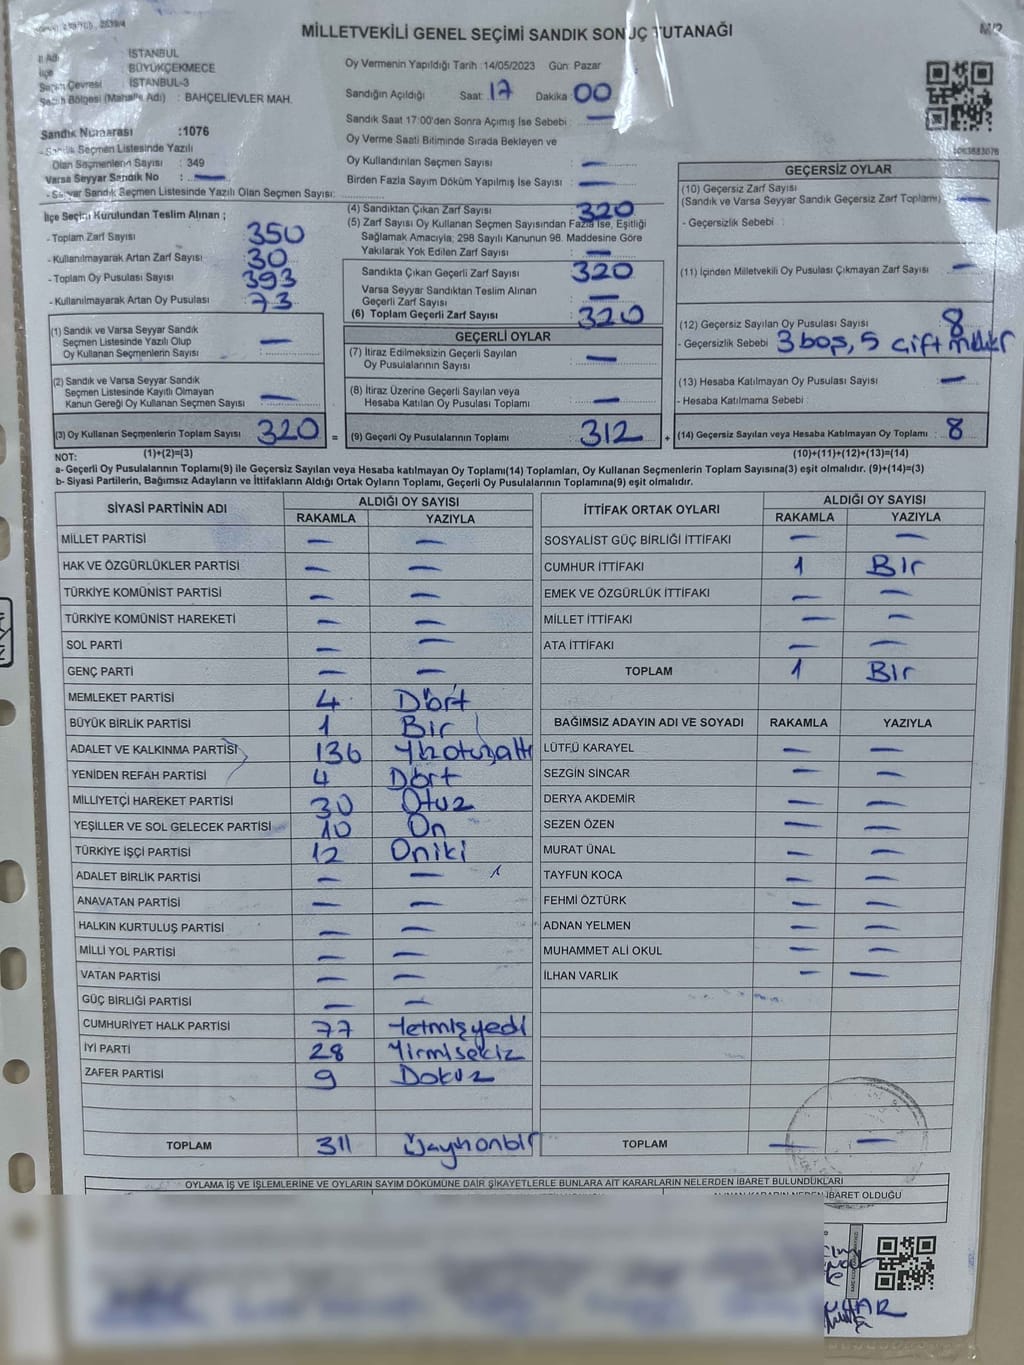 MİLLETVEKİLİ GENEL SEÇİMİ SANDIK SONUÇ TUTANAĞI
İl Adı : İSTANBUL
İlçe : BÜYÜKÇEKMECE
Seçim Çevresi : İSTANBUL-3
Seçim Bölgesi (Mahalle Adı) : BAHÇELİEVLER MAH.
Sandık Numarası :1076
- Sandık Seçmen Listesinde Yazılı
Olan Seçmenlerin Sayısı : 349
Varsa Seyyar Sandık No : —
- Seyyar Sandık Seçmen Listesinde Yazılı Olan Seçmen Sayısı:
İlçe Seçim Kurulundan Teslim Alınan ;
- Toplam Zarf Sayısı 350
- Kullanılmayarak Artan Zarf Sayısı 30
- Toplam Oy Pusulası Sayısı 393
- Kullanılmayarak Artan Oy Pusulası 73
(1) Sandık ve Varsa Seyyar Sandık
Seçmen Listesinde Yazılı Olup
Oy Kullanan Seçmenlerin Sayısı —
(2) Sandık ve Varsa Seyyar Sandık
Seçmen Listesinde Kayıtlı Olmayan
Kanun Gereği Oy Kullanan Seçmen Sayısı —
(3) Oy Kullanan Seçmenlerin Toplam Sayısı 320
(1)+(2)=(3)
Oy Vermenin Yapıldığı Tarih :14/05/2023 Gün: Pazar
Sandığın Açıldığı Saat: 17 Dakika: 00
Sandık Saat 17:00'den Sonra Açımış İse Sebebi : —
Oy Verme Saati Bitiminde Sırada Bekleyen ve
Oy Kullandırılan Seçmen Sayısı —
Birden Fazla Sayım Döküm Yapılmış İse Sayısı : —
(4) Sandıktan Çıkan Zarf Sayısı 320
(5) Zarf Sayısı Oy Kullanan Seçmen Sayısından Fazla İse, Eşitliği
Sağlamak Amacıyla; 298 Sayılı Kanunun 98. Maddesine Göre
Yakılarak Yok Edilen Zarf Sayısı : —
Sandıkta Çıkan Geçerli Zarf Sayısı 320
Varsa Seyyar Sandıktan Teslim Alınan
Geçerli Zarf Sayısı —
(6) Toplam Geçerli Zarf Sayısı : 320
GEÇERLİ OYLAR
(7) İtiraz Edilmeksizin Geçerli Sayılan
Oy Pusulalarının Sayısı —
(8) İtiraz Üzerine Geçerli Sayılan veya
Hesaba Katılan Oy Pusulası Toplamı —
= (9) Geçerli Oy Pusulalarının Toplamı : 312
GEÇERSİZ OYLAR
(10) Geçersiz Zarf Sayısı
(Sandık ve Varsa Seyyar Sandık Geçersiz Zarf Toplamı) —
- Geçersizlik Sebebi :
(11) İçinden Milletvekili Oy Pusulası Çıkmayan Zarf Sayısı —
(12) Geçersiz Sayılan Oy Pusulası Sayısı : 8
- Geçersizlik Sebebi 3 boş, 5 çift mühür
(13) Hesaba Katılmayan Oy Pusulası Sayısı —
- Hesaba Katılmama Sebebi :
+ (14) Geçersiz Sayılan veya Hesaba Katılmayan Oy Toplamı : 8
(10)+(11)+(12)+(13)=(14)
NOT:
a- Geçerli Oy Pusulalarının Toplamı(9) ile Geçersiz Sayılan veya Hesaba katılmayan Oy Toplamı(14) Toplamları, Oy Kullanan Seçmenlerin Toplam Sayısına(3) eşit olmalıdır. (9)+(14)=(3)
b- Siyasi Partilerin, Bağımsız Adayların ve İttifakların Aldığı Ortak Oyların Toplamı, Geçerli Oy Pusulalarının Toplamına(9) eşit olmalıdır.
SİYASİ PARTİNİN ADI ALDIĞI OY SAYISI
RAKAMLA YAZIYLA
MİLLET PARTİSİ — —
HAK VE ÖZGÜRLÜKLER PARTİSİ — —
TÜRKİYE KOMÜNİST PARTİSİ — —
TÜRKİYE KOMÜNİST HAREKETİ — —
SOL PARTİ — —
GENÇ PARTİ — —
MEMLEKET PARTİSİ 4 Dört
BÜYÜK BİRLİK PARTİSİ 1 Bir
ADALET VE KALKINMA PARTİSİ 136 Yüzotuzaltı
YENİDEN REFAH PARTİSİ 4 Dört
MİLLİYETÇİ HAREKET PARTİSİ 30 Otuz
YEŞİLLER VE SOL GELECEK PARTİSİ 10 On
TÜRKİYE İŞÇİ PARTİSİ 12 Oniki
ADALET BİRLİK PARTİSİ — —
ANAVATAN PARTİSİ — —
HALKIN KURTULUŞ PARTİSİ — —
MİLLİ YOL PARTİSİ — —
VATAN PARTİSİ — —
GÜÇ BİRLİĞİ PARTİSİ — —
CUMHURİYET HALK PARTİSİ 77 Yetmişyedi
İYİ PARTİ 28 Yirmisekiz
ZAFER PARTİSİ 9 Dokuz
TOPLAM 311 Üçyüzonbir
İTTİFAK ORTAK OYLARI ALDIĞI OY SAYISI
RAKAMLA YAZIYLA
SOSYALİST GÜÇ BİRLİĞİ İTTİFAKI — —
CUMHUR İTTİFAKI 1 Bir
EMEK VE ÖZGÜRLÜK İTTİFAKI — —
MİLLET İTTİFAKI — —
ATA İTTİFAKI — —
TOPLAM 1 Bir
BAĞIMSIZ ADAYIN ADI VE SOYADI RAKAMLA YAZIYLA
LÜTFÜ KARAYEL — —
SEZGİN SİNCAR — —
DERYA AKDEMİR — —
SEZEN ÖZEN — —
MURAT ÜNAL — —
TAYFUN KOCA — —
FEHMİ ÖZTÜRK — —
ADNAN YELMEN — —
MUHAMMET ALİ OKUL — —
İLHAN VARLIK — —
TOPLAM — —
OYLAMA İŞ VE İŞLEMLERİNE VE OYLARIN SAYIM DÖKÜMÜNE DAİR ŞİKAYETLERLE BUNLARA AİT KARARLARIN NELERDEN İBARET BULUNDUKLARI
İBARET OLDUĞU